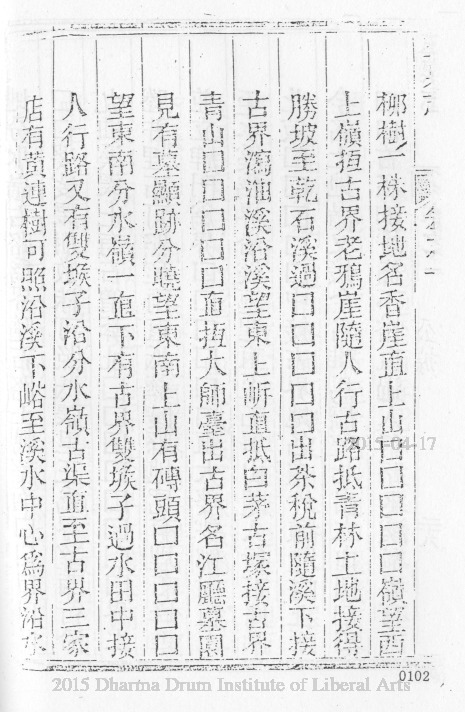 榔樹一株接地名香崖直上山囗囗囗囗嶺望西
上嶺恆古界老鴉崖隨人行古路抵青林土地接得
勝坡至乾石溪過囗囗囗囗囗出茶稅前隨溪下接
古界瀉油溪沿溪望東上㟁直抵白茅古塚接古界
青山囗囗囗囗囗直恆大師臺出古界名江廳墓園
見有墓顯跡分曉望東南上山有磚頭囗囗囗囗囗
望東南分水嶺一直下有古界雙堠子過水田中接
人行路又有雙堠子沿分水嶺古渠直至古界三家
店有黃連樹可照沿溪下峪至溪水中心為界沿水
2015-04-17
0102
2015 Dharma Drum Institute of Liberal Arts